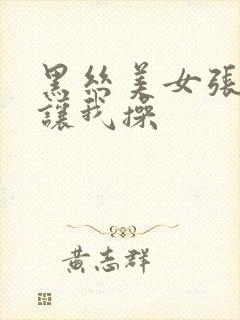 黑絲美女張
讓我操
黃志群